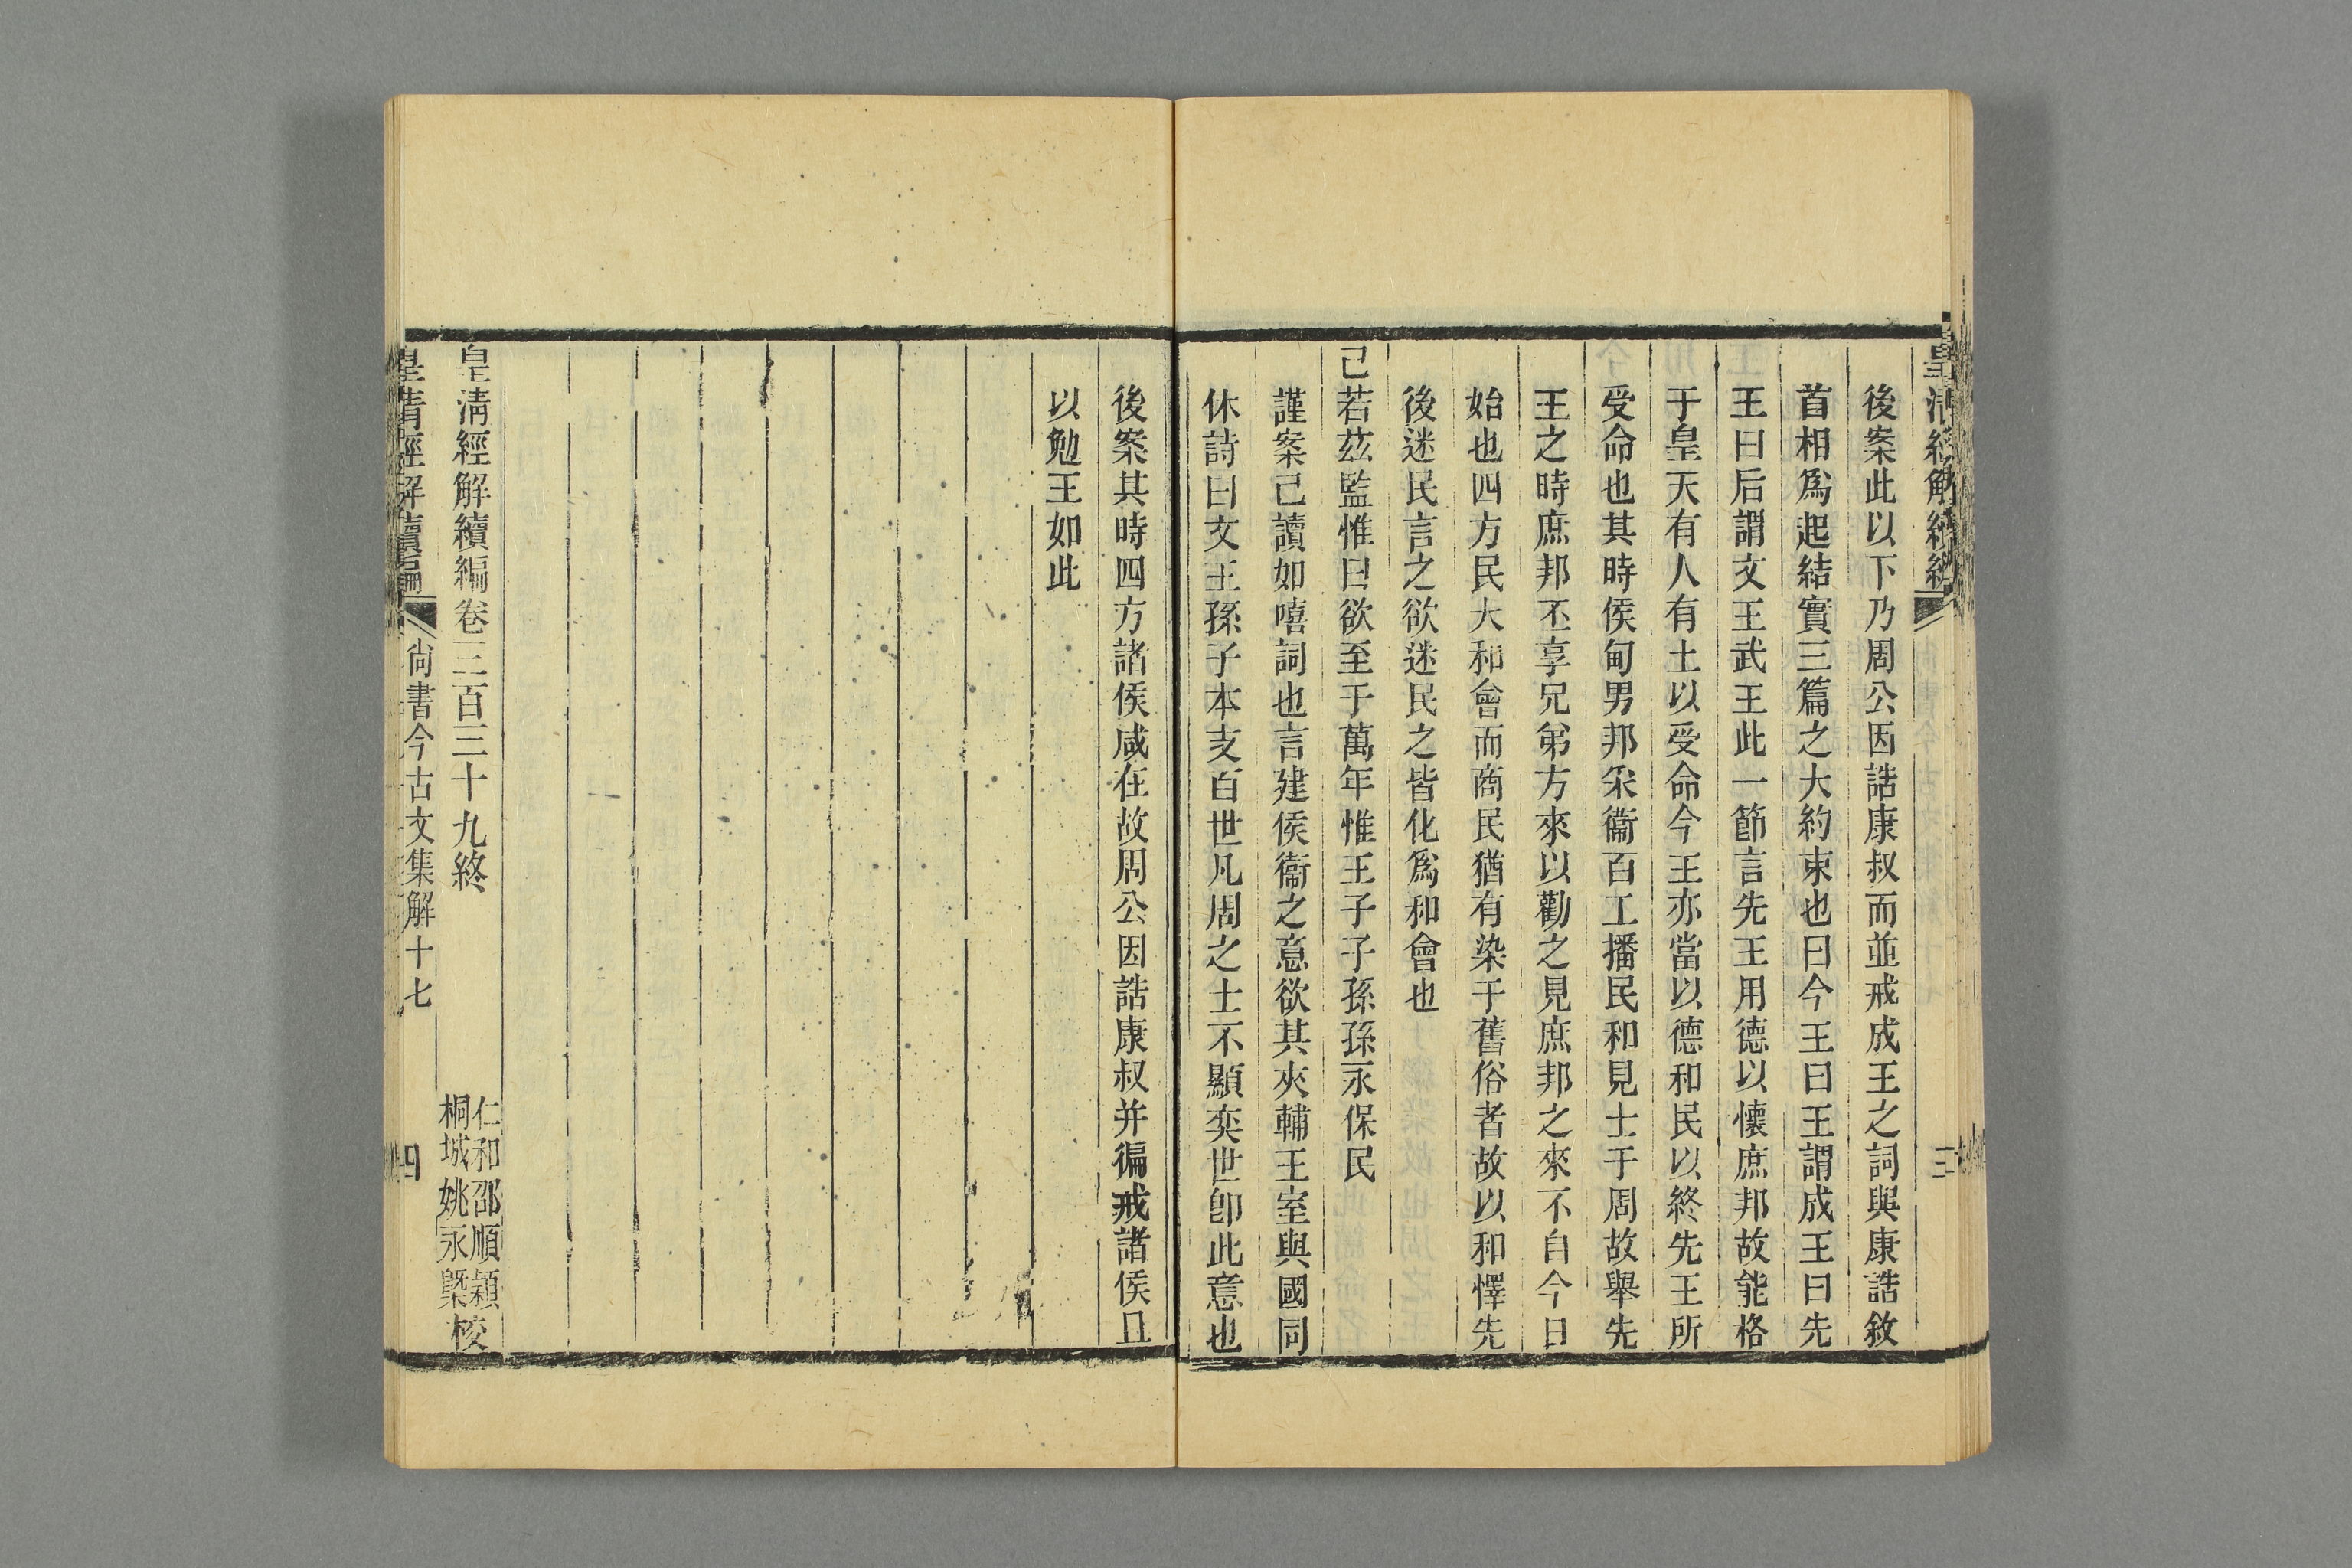 後案此以下乃周公因誥康叔而並戒成王之詞與康誥敘
首相爲起結實三篇之大約束也曰今王曰王謂成王曰先
王曰后謂文王武王此一節言先王用德以懷庶邦故能格
于皇天有人有土以受命今王亦當以德和民以終先王所
受命也其時侯甸男邦采衞百工播民和見士于周故舉先
王之時庶邦丕享兄弟方來以勸之見庶邦之來不自今日
始也四方民大和會而商民猶有染于舊俗者故以和懌先
後迷民言之欲迷民之皆化爲和會也
已若茲監惟曰欲至于萬年惟王子子孫孫永保民
謹案已讀如嘻詞也言建侯衞之意欲其夾輔王室與國同
休詩曰文王孫子本支百世凡周之士不顯奕世卽此意也
後案其時四方諸侯咸在故周公因誥康叔并徧戒諸侯且
以勉王如此
皇淸經解續編卷三百三十九終
仁和邵順穎
桐城姚永㮣校
皇清經解續編 尙書今古文集解十七 四